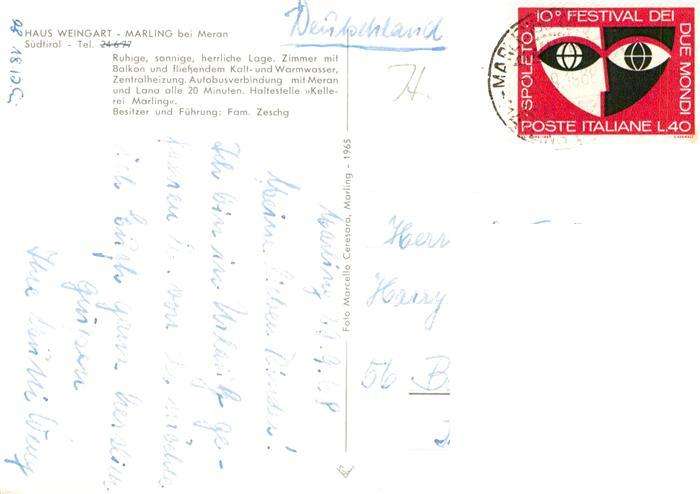 HAUS WEINGART - MARLING bei Meran
Südtirol - Tel. 24-6-77
Ruhige, sonnige, herrliche Lage. Zimmer mit
Balkon und fließendem Kalt- und Warmwasser,
Zentralheizung. Autobusverbindung mit Meran
und Lana alle 20 Minuten. Haltestelle »Kelle-
rei Marling«.
Besitzer und Führung: Fam. Zeschg
Deutschland
H.
10° FESTIVAL DEI
DUE MONDI
SPOLETO
POSTE ITALIANE L.40
Foto Marcello Ceresara, Marling - 1965
Marling
Meine lieben Kinder!
Ich bin in Urlaub ge-
ich Euch ganz herzlich
grüssen
Ihre
Herr
Harry
56 B